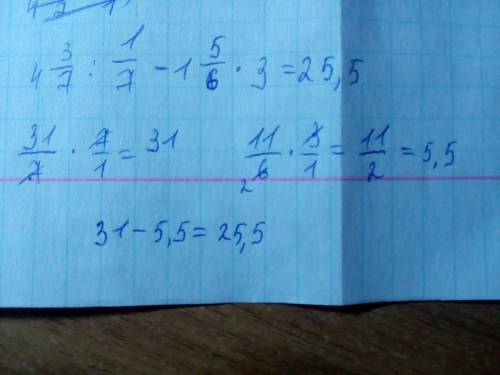 4 3/7 : 1/7 - 1 5/6 · 3 = 25,5
31/7 · 7/1 = 31    11/6 · 3/1 = 11/2 = 5,5
2
31 - 5,5 = 25,5